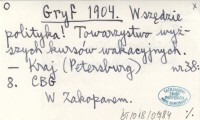 Gryf 1904. Wszędzie
polityka! Towarzystwo wyż-
szych kursów wakacyjnych.
– Kraj (Petersburg) nr 38:
8. CBG
W Zakopanem.